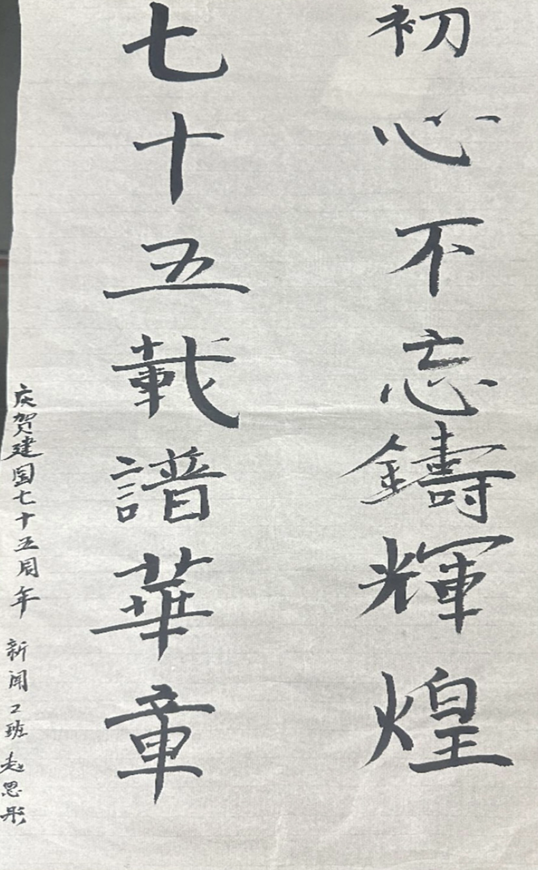 初心不忘鑄輝煌
七十五載譜華章
庆贺建国七十五周年 新闻2班 赵思彤